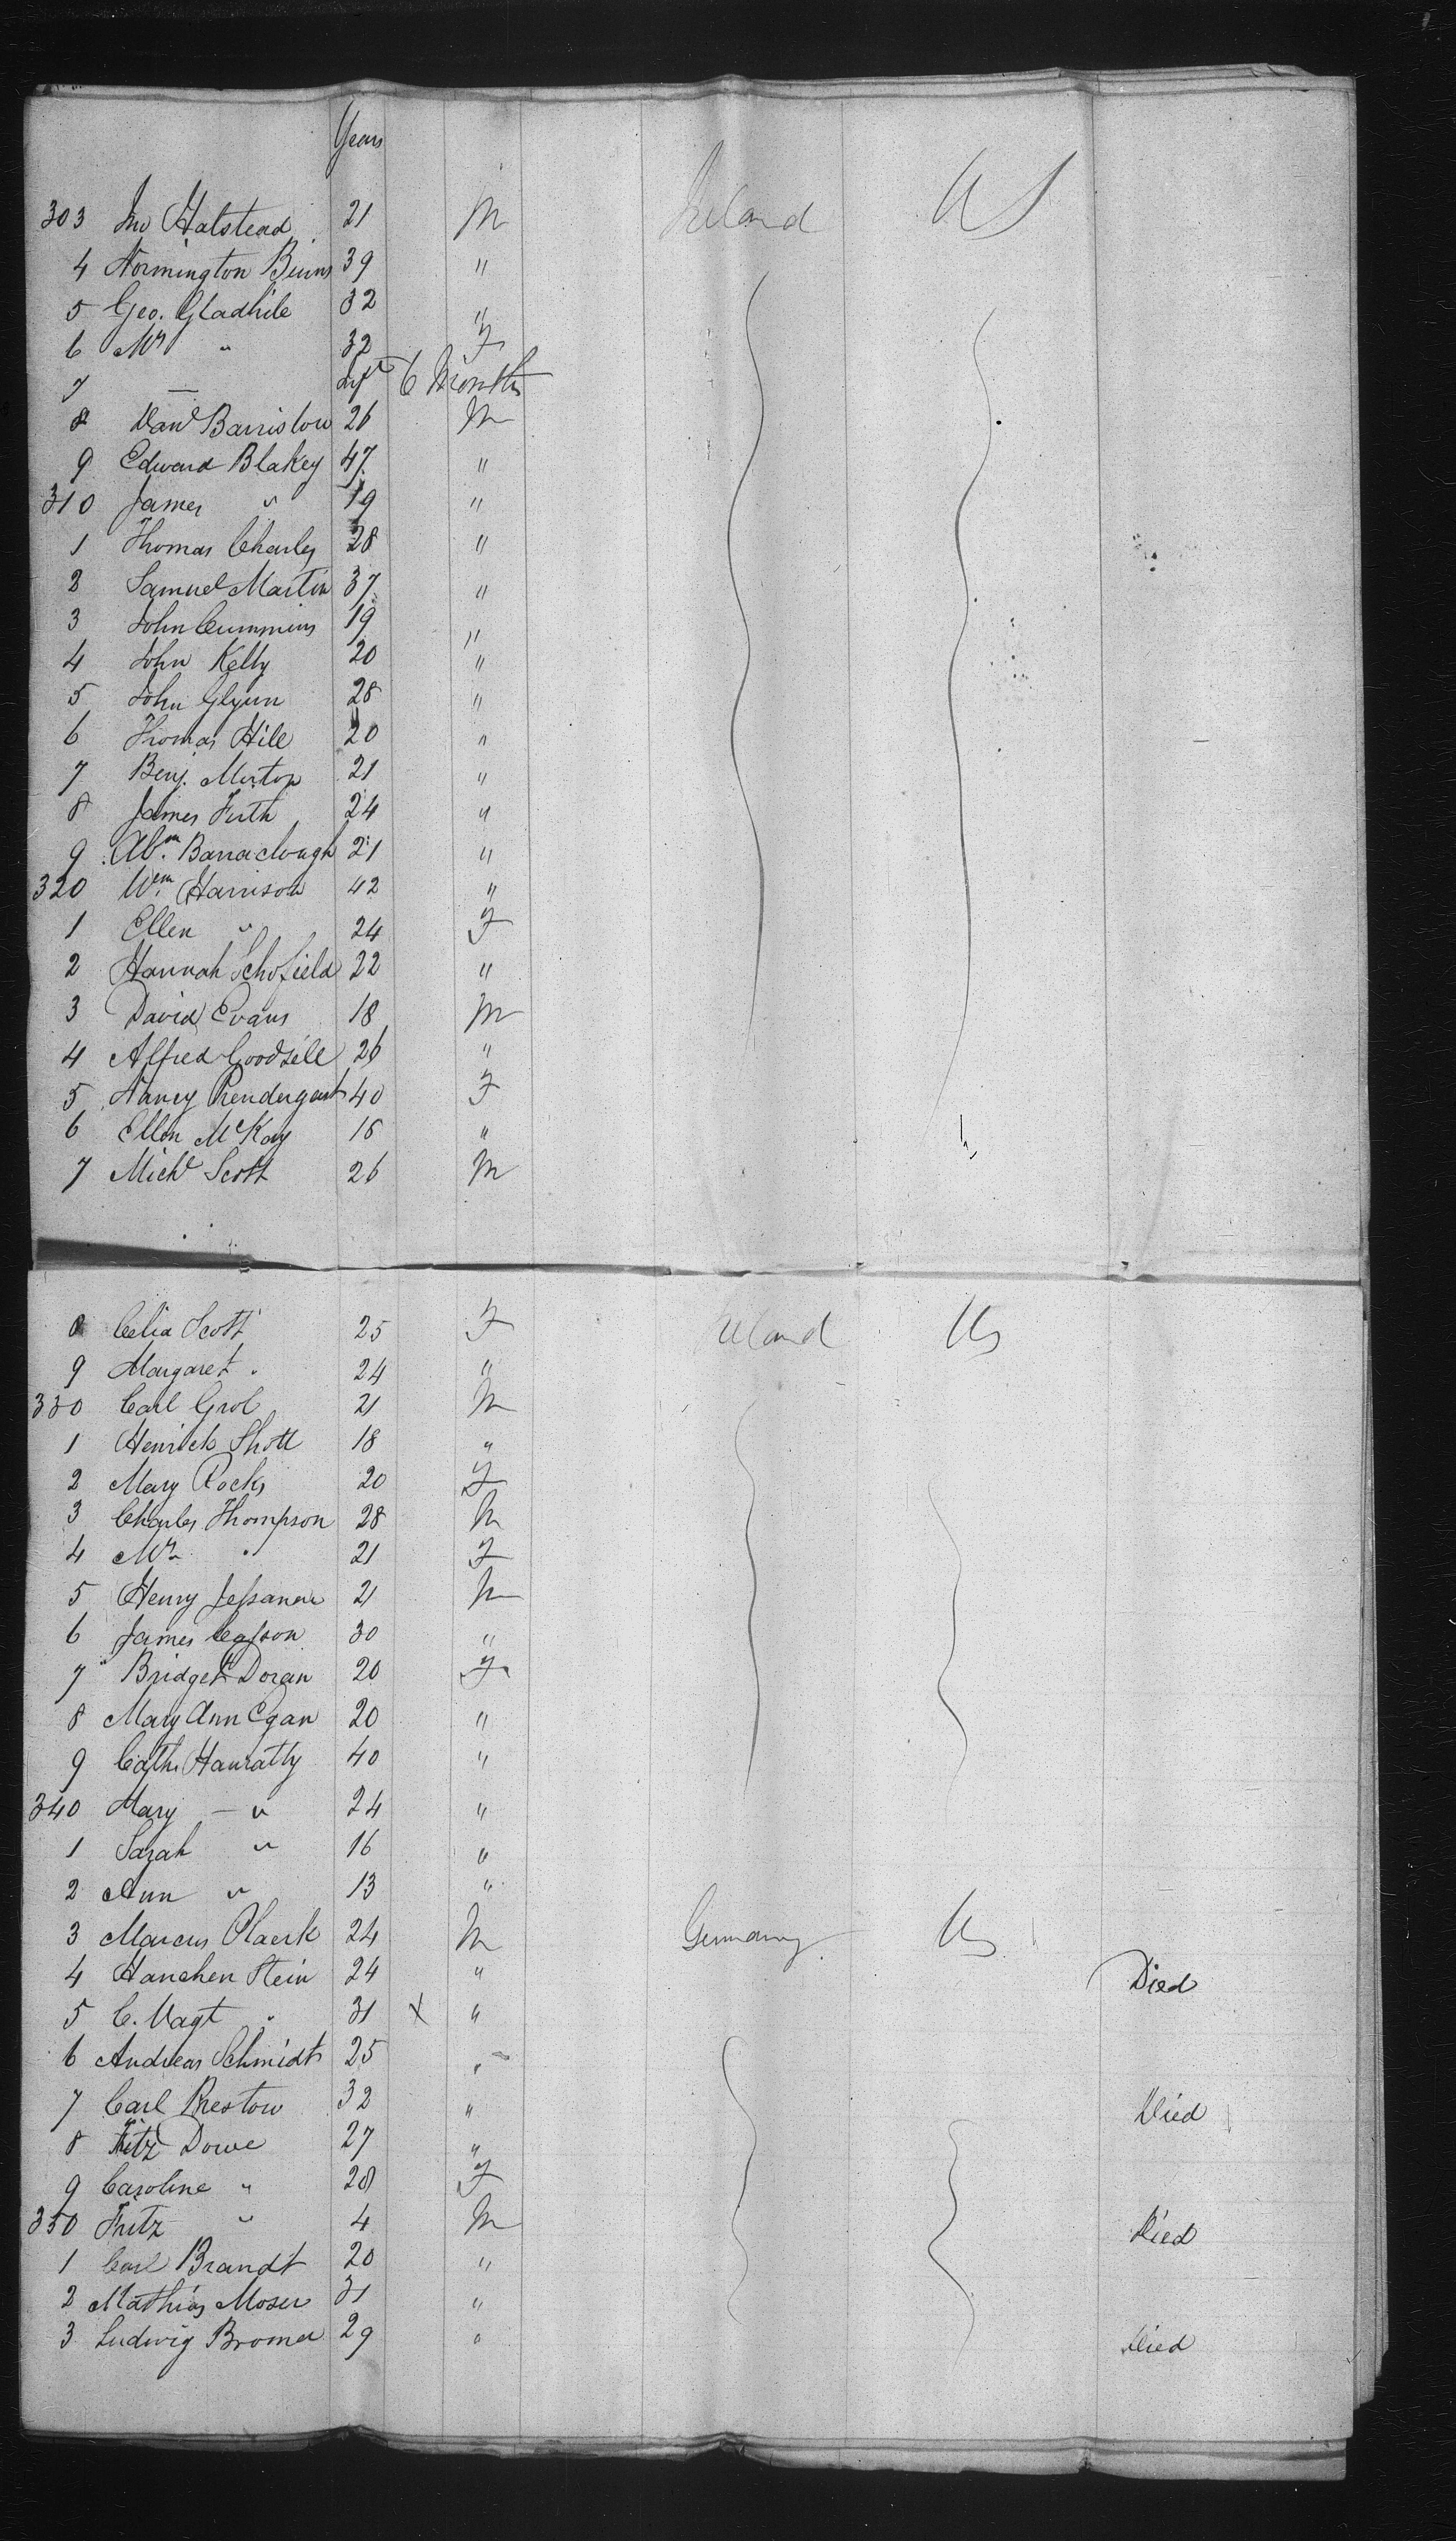 Years
303 Jno Halstead 21 M Ireland US
4 Normington Binns 39 "
5 Geo. Gladhile 32 "
6 Mrs " 32 F
7 — Inft 6 Months
8 Danl Barristow 26 M
9 Edward Blakey 47 "
310 James " 19 "
1 Thomas Charles 28 "
2 Samuel Martin 37 "
3 John Cummins 19 "
4 John Kelly 20 "
5 John Glynn 28 "
6 Thomas Hile 20 "
7 Benj. Merton 21 "
8 James Firth 24 "
9 Abm. Barraclough 21 "
320 Wm. Harrison 42 "
1 Ellen " 24 F
2 Hannah Schofield 22 "
3 David Evans 18 M
4 Alfred Goodsele 26 "
5 Nancy Prendergast 40 F
6 Ellen McKay 16 "
7 Michl Scott 26 M
8 Celia Scott 25 F Ireland US
9 Margaret " 24 "
330 Carl Grob 21 M
1 Henrick Shott 18 "
2 Mary Rocks 20 F
3 Charles Thompson 28 M
4 Mrs " 21 F
5 Henry 21 M
6 James Casson 30 "
7 Bridget Doran 20 F
8 Mary Ann Egan 20 "
9 Cath. Hanratty 40 "
340 Mary — " 24 "
1 Sarah " 16 "
2 Ann " 13 "
3 Marcus 24 M Germany US
4 Hanchen Stein 24 " Died
5 C. Vagt 31 X "
6 Andreas Schmidt 25 "
7 Carl Prestow 32 " Died
8 Fritz Dowe 27 "
9 Caroline " 28 F
350 Fritz " 4 M Died
1 Carl Brandt 20 "
2 Mathias Moser 31 "
3 Ludwig Bromer 29 " Died